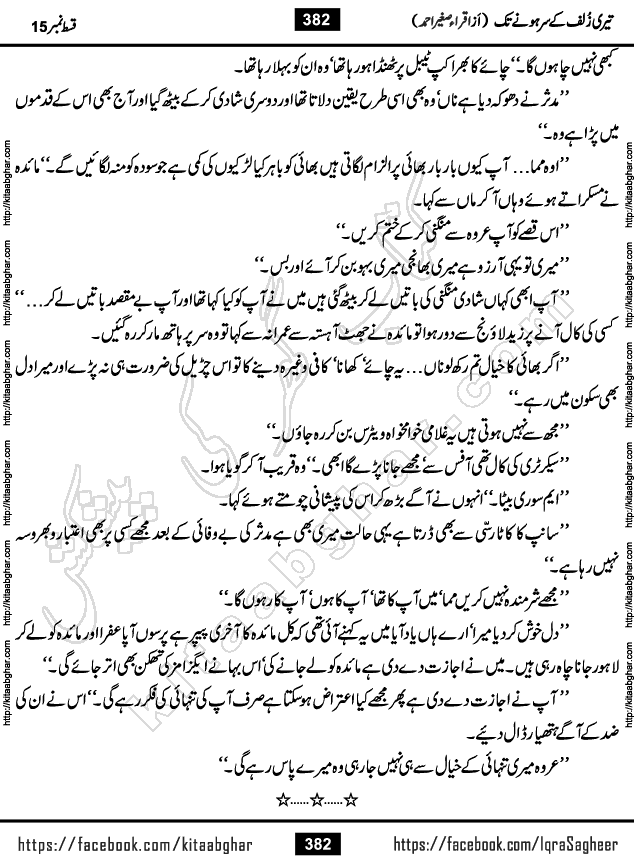 تیری زُلف کے سر ہونے تک (از اقراء صغیر احمد)
382
قسط نمبر 15
کبھی نہیں چاہوں گا۔‘‘ چائے کا بھرا کپ ٹیبل پر ٹھنڈا ہو رہا تھا‘ وہ ان کو بہلا رہا تھا۔
’’مدثر نے دھوکہ دیا ہے ناں‘ وہ بھی اسی طرح یقین دلاتا تھا اور دوسری شادی کر کے بیٹھ گیا اور آج بھی اس کے قدموں
میں پڑا ہے وہ۔‘‘
’’اوہ مما... آپ کیوں بار بار بھائی پر الزام لگاتی ہیں بھائی کو باہر کیا لڑکیوں کی کمی ہے جو سودہ کو منہ لگائیں گے۔‘‘ مائدہ
نے مسکراتے ہوئے وہاں آ کر ماں سے کہا۔
’’اس قصے کو آپ عروہ سے منگنی کر کے ختم کریں۔‘‘
’’میری تو یہی آرزو ہے میری بھانجی میری بہو بن کر آئے اور بس۔‘‘
’’آپ ابھی کہاں شادی منگنی کی باتیں لے کر بیٹھ گئی ہیں میں نے آپ کو کیا کہا تھا اور آپ بے مقصد باتیں لے کر...‘‘
کسی کی کال آنے پر زید لاؤنج سے دور ہوا تو مائدہ نے جھٹ آہستہ سے عمرانہ سے کہا تو وہ سر پر ہاتھ مار کر رہ گئیں۔
’’اگر بھائی کا خیال تم رکھ لو ناں... یہ چائے‘ کھانا‘ کافی وغیرہ دینے کا تو اس چڑیل کی ضرورت ہی نہ پڑے اور میرا دل
بھی سکون میں رہے۔‘‘
’’مجھ سے نہیں ہوتی ہیں یہ غلامی خوامخواہ ویٹرس بن کر رہ جاؤں۔‘‘
’’سیکرٹری کی کال تھی آفس سے‘ مجھے جانا پڑے گا ابھی۔‘‘ وہ قریب آ کر گویا ہوا۔
’’ایم سوری بیٹا۔‘‘ انہوں نے آگے بڑھ کر اس کی پیشانی چومتے ہوئے کہا۔
’’سانپ کا کاٹا رسّی سے بھی ڈرتا ہے یہی حالت میری بھی ہے مدثر کی بے وفائی کے بعد مجھے کسی پر بھی اعتبار و بھروسہ
نہیں رہا ہے۔‘‘
’’مجھے شرمندہ نہیں کریں مما‘ میں آپ کا تھا‘ آپ کا ہوں‘ آپ کا رہوں گا۔‘‘
’’دل خوش کر دیا میرا‘ ارے ہاں یاد آیا میں یہ کہنے آئی تھی کہ کل مائدہ کا آخری پیپر ہے پرسوں آپا عفرا اور مائدہ کو لے کر
لاہور جانا چاہ رہی ہیں۔ میں نے اجازت دے دی ہے مائدہ کو لے جانے کی‘ اس بہانے ایگزامز کی تھکن بھی اتر جائے گی۔‘‘
’’آپ نے اجازت دے دی ہے پھر مجھے کیا اعتراض ہو سکتا ہے صرف آپ کی تنہائی کی فکر رہے گی۔‘‘ اس نے ان کی
ضد کے آگے ہتھیار ڈال دیے۔
’’عروہ میری تنہائی کے خیال سے ہی نہیں جا رہی وہ میرے پاس رہے گی۔‘‘
☆......☆......☆
http://kitaabghar.com
http://kitaabghar.com
http://kitaabghar.com
http://kitaabghar.com
http://kitaabghar.com
http://kitaabghar.com
http://kitaabghar.com
http://kitaabghar.com
http://kitaabghar.com
http://kitaabghar.com
http://kitaabghar.com
http://kitaabghar.com
کتاب گھر کی پیشکش
kitaabghar.com
https://facebook.com/kitaabghar
382
https://facebook.com/IqraSagheer